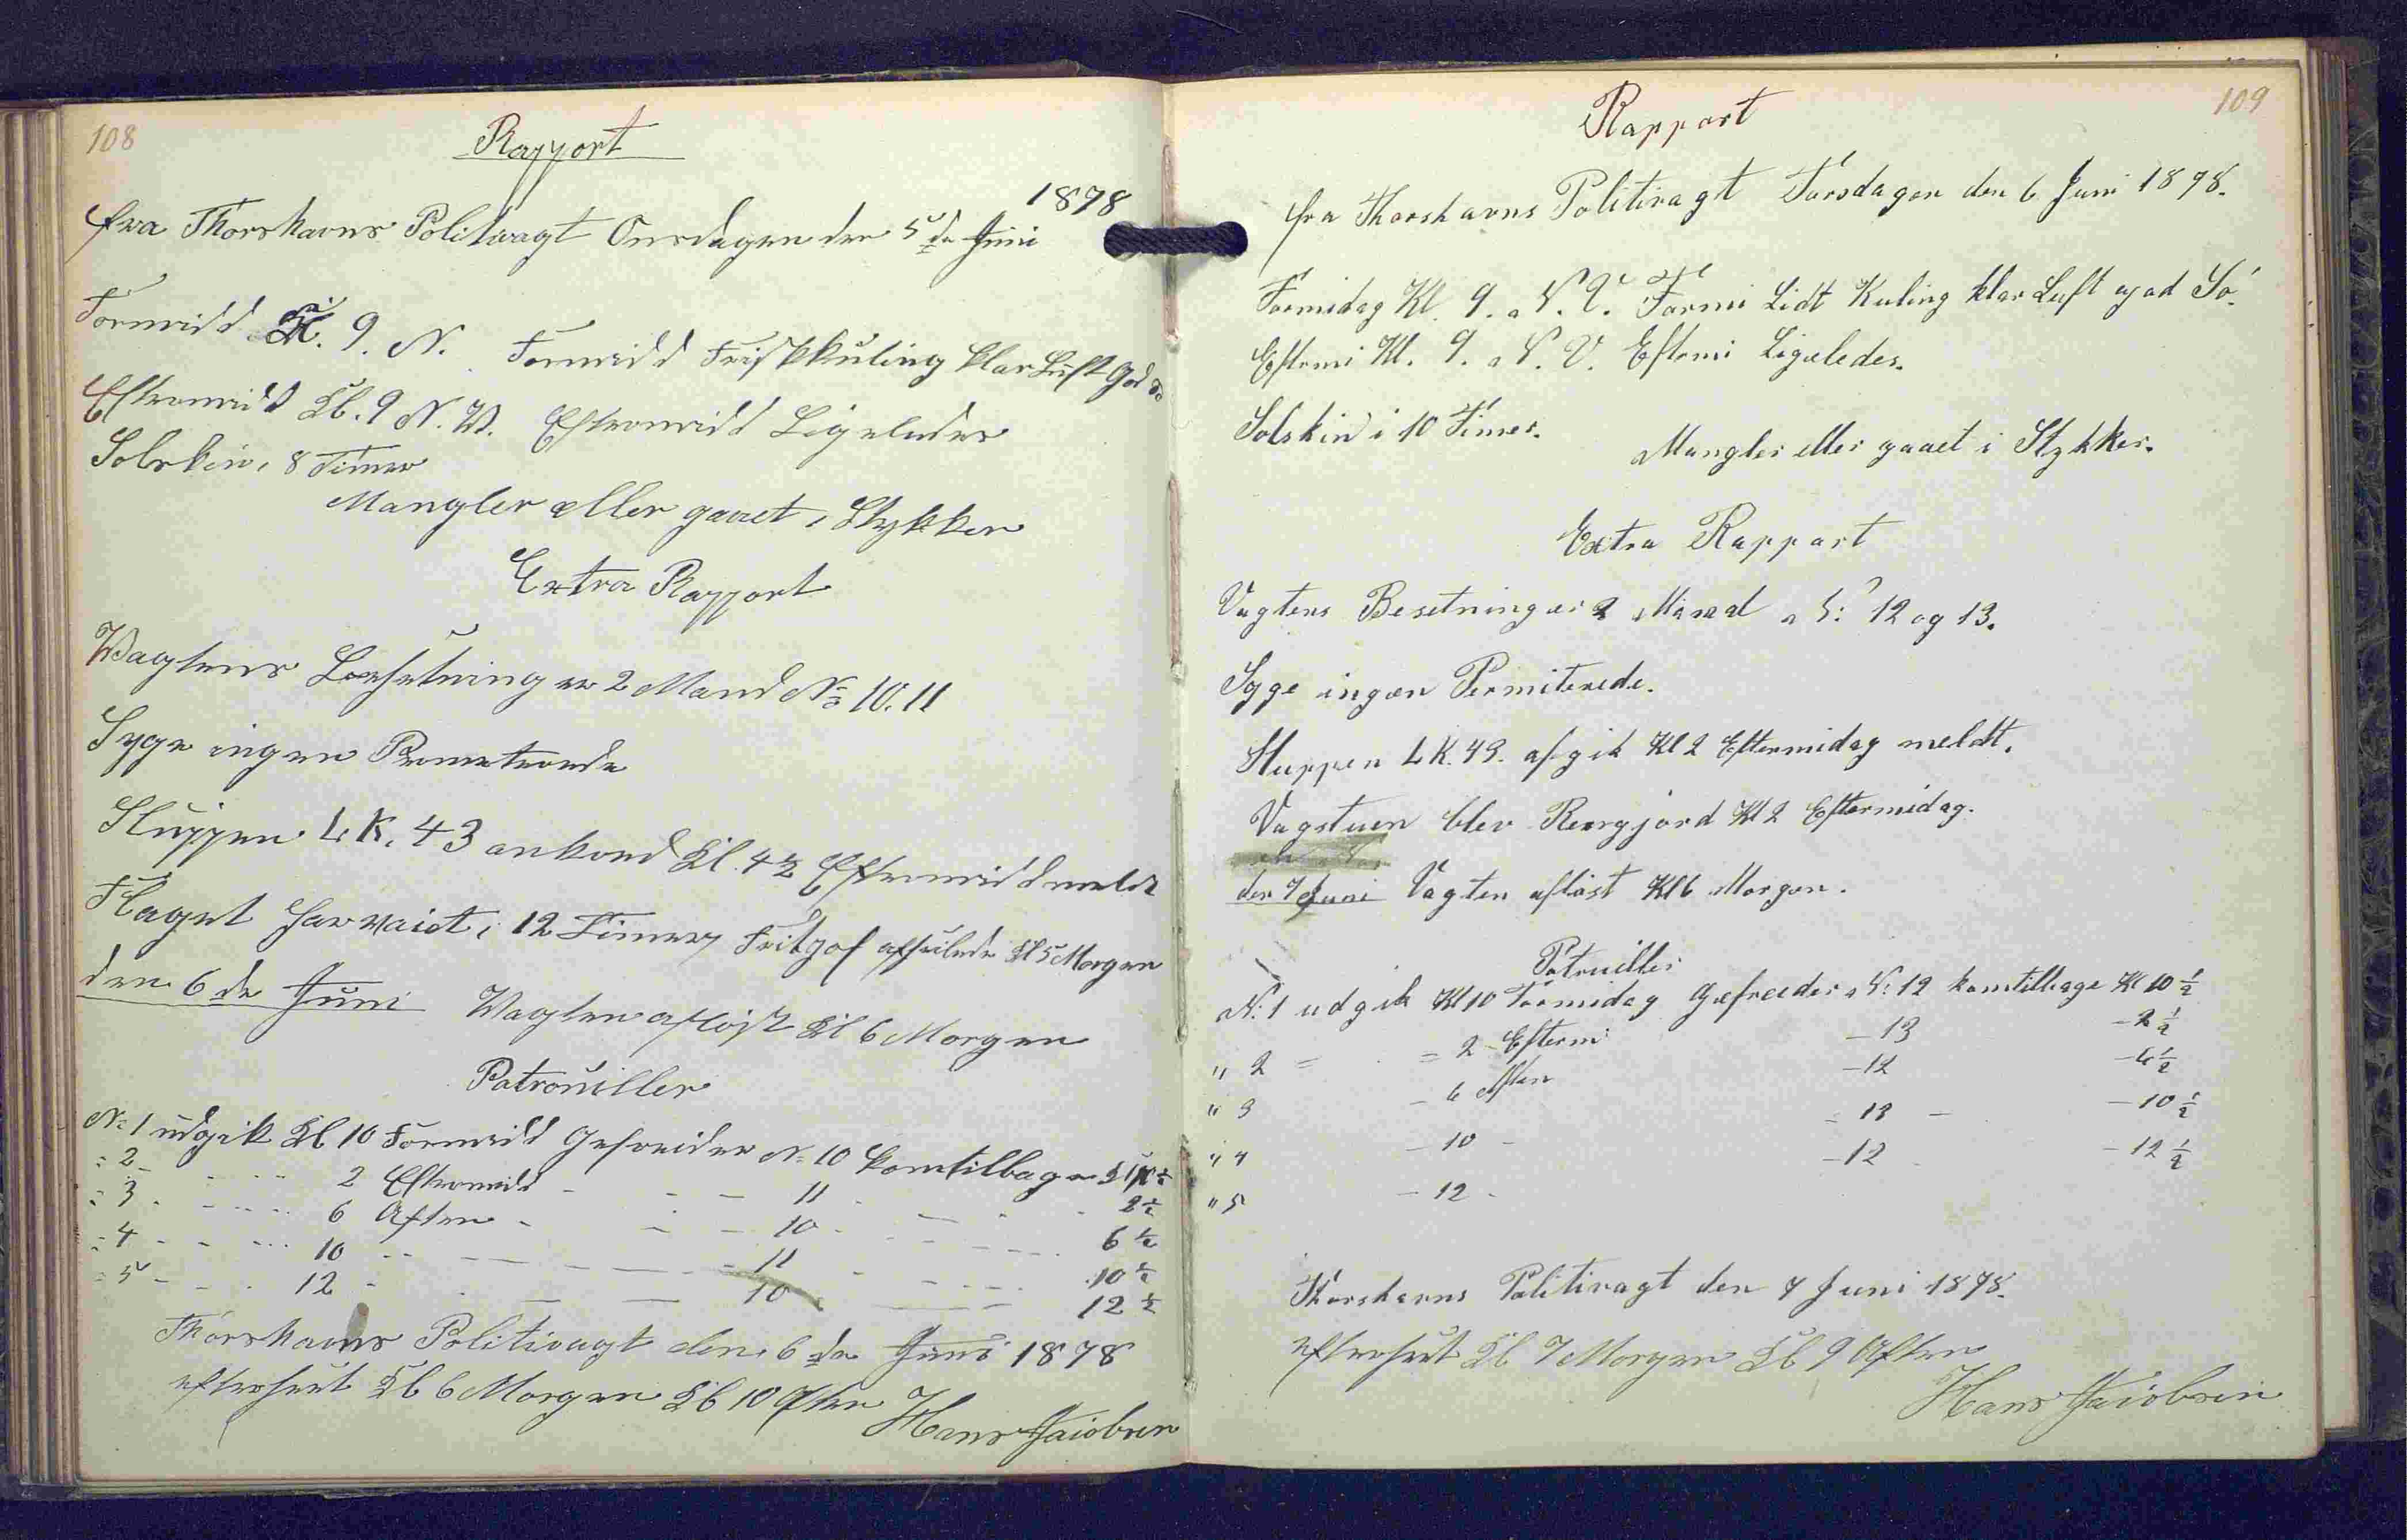 108
Rapport
1878
fra Thorshavns Politivagt Onsdagen den 5 de Juni
Formidd Kl. 9. N. Formidd Friskkuling klar Luft God Sö
Eftermidd Kl. 9 N. V. Eftermidd Ligeledes
Solskin i 8 Timer
Mangler eller gaaet i Stykker
Extra Rapport
Vagtens Besetning er 2 Mand No 10. 11
Syge ingen Permeterede
Sluppen L. K. 43 ankom Kl. 4½ Eftermidd meldt
Flaget har vaiet i 12 Timer Fritjof afseilede Kl 5 Morgen
den 6 de Juni Vagten aflöst Kl 6 Morgen
Patrouiller
No 1 udgik Kl 10 Formidd Gefreider No 10 kom tilbage Kl 10½
" 2 - - - 2 Eftermidd - - - 11 - - - 2½
" 3 - - - 6 Aften - - - 10 - - - 6½
" 4 - - - 10 - - - 11 - - - 10½
" 5 - - - 12 - - - 10 - - - 12½
Thorshavns Politivagt den 6 de Juni 1878
efterseet Kl 6 Morgen Kl 10 Aften
Hans Jacobsen
109
Rapport
fra Thorshavns Politivagt Torsdagen den 6 Juni 1878.
Formidag Kl. 9. N. V. Formi Lidt Kuling klar Luft god Sö.
Eftermi Kl. 9. N. V. Eftermi Ligeledes.
Solskin i 10 Timer.
Mangler eller gaaet i Stykker.
Extra Rapport
Vagtens Besetning er 2 Mand No: 12 og 13.
Syge ingen Permiterede.
Sluppen L K. 43. afgik Kl 2 Eftermidag meldt.
Vagstuen blev Rengjord Kl 2 Eftermidag.
den 7 Juni Vagten aflöst Kl 6 Morgen.
Patruiller
No: 1 udgik Kl 10 Formidag Gefreider No: 12 kom tilbage Kl 10½
" 2 = = 2 - Eftermi - 13 - 2½
" 3 - 6 Aften - 12 - 6½
" 4 - 10 - - 13 - - 10½
" 5 - 12 - - 12 - 12½
Thorshavns Politivagt den 7 Juni 1878.
efterseet Kl 7 Morgen Kl 9 Aften
Hans Jacobsen